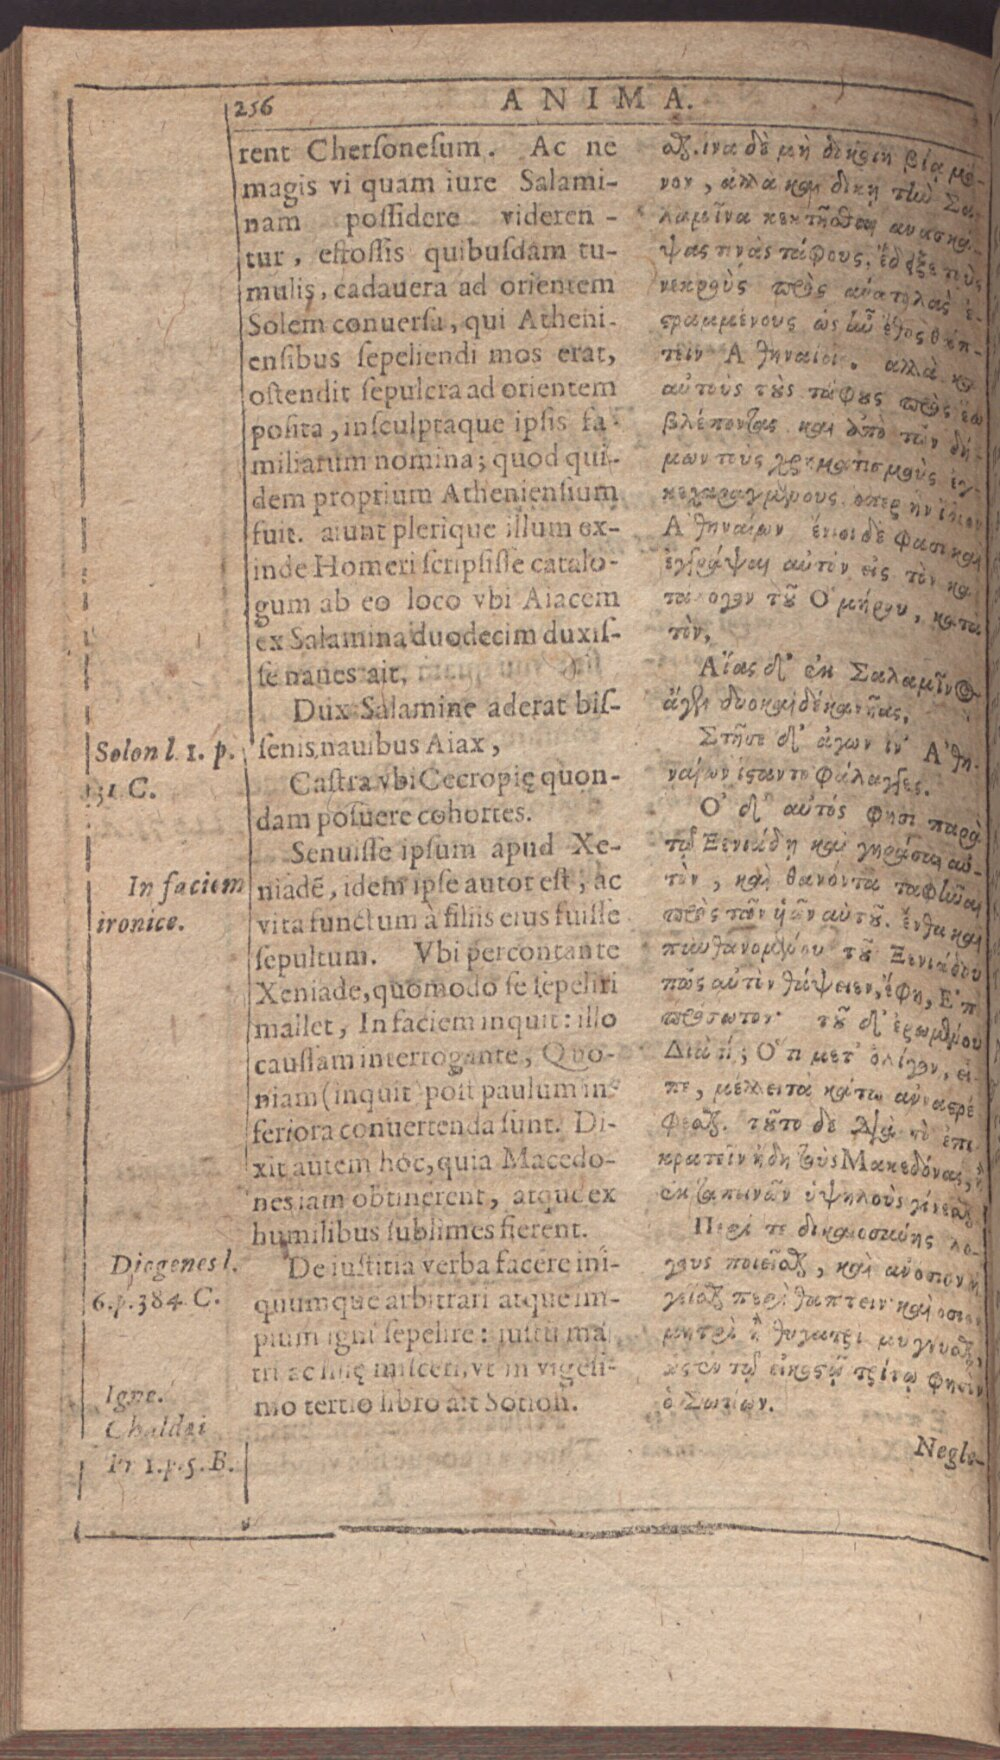 256
ANIMA.
rent Chersonesum. Ac ne
magis vi quam iure Salami-
nam possidere videren-
tur, effossis quibusdam tu-
mulis, cadauera ad orientem
Solem conuersa, qui Atheni-
ensibus sepeliendi mos erat,
ostendit sepulcra ad orientem
posita, insculptaque ipsis fa-
miliarum nomina; quod qui-
dem proprium Atheniensium
fuit. aiunt plerique illum ex-
inde Homeri scripsisse catalo-
gum ab eo loco vbi Aiacem
ex Salamina duodecim duxis-
se naues ait,
Dux Salamine aderat bis-
senis nauibus Aiax,
Castra vbi Cecropię quon-
dam posuere cohortes.
Senuisse ipsum apud Xe-
niadē, idem ipse autor est; ac
vita functum à filiis eius fuisse
sepultum. Vbi percontante
Xeniade, quomodo se sepeliri
mallet, In faciem inquit: illo
caussam interrogante, Quo-
niam (inquit post paulum in-
feriora conuertenda sunt. Di-
xit autem hoc, quia Macedo-
nes iam obtinerent, atque ex
humilibus sublimes fierent.
De iustitia verba facere ini-
quumque arbitrari atque im-
pium igni sepelire: iustū ma
tri ac filię misceri, vt in vigesi-
mo tertio libro ait Sotion.
Solon l. 1. p.
31 C.
In faciem
ironice.
Diogenes l.
6. p. 384 C.
Igne.
Chaldæi
Pr 1. p. 5. B.
ἵνα δὲ μὴ δοκοίη βίᾳ μό-
νον, ἀλλὰ καὶ δίκῃ τὴν Σα-
λαμῖνα κεκτῆσθαι ἀνασκά-
ψας τινὰς τάφους, ἔδειξε τοὺς
νεκροὺς πρὸς ἀνατολὰς ἐ-
στραμμένους ὡς ἦν ἔθος θάπ-
τειν Ἀθηναίοι. ἀλλὰ καὶ
αὐτοὺς τοὺς τάφους πρὸς ἕω
βλέποντας καὶ ἀπὸ τῶν δή-
μων τοὺς χρηματισμοὺς ἐγ-
κεχαραγμένους ὅπερ ἦν ἴδιον
Ἀθηναίων ἔνιοι δὲ φασὶ καὶ
ἐγγράψαι αὐτὸν εἰς τὸν κα
τάλογον τοῦ Ὁμήρου, κατὰ
τὸν,
Αἴας δ' ἐκ Σαλαμῖνος
ἄγεν δυοκαίδεκα νῆας,
Στῆσε δ' ἄγων ἵν' Ἀθη-
ναίων ἵσταντο φάλαγγες.
Ὁ δ' αὐτός φησι παρὰ
τῷ Ξενιάδῃ καὶ γηρᾶσαι αὐ-
τὸν, καὶ θανόντα ταφῆναι
πρὸς τῶν ἡῶν αὐτοῦ. ἔνθα καὶ
πυνθανομένου τοῦ Ξενιάδου
πῶς αὐτὸν θάψειεν, ἔφη, Ἐπὶ
πρόσωπον τοῦ δ' ἐρωμένου
Διὰ τί; Ὅτι μετ' ὀλίγον, εἶ-
πε, μέλλει τὰ κάτω ἄνω στρέ
φεσθαι. τοῦτο δὲ διὰ τὸ ἐπι-
κρατεῖν ἤδη τοὺς Μακεδόνας, ἢ
ἐκ ταπεινῶν ὑψηλοὺς γίνεσθαι
Περί τε δικαιοσύνης λό-
γους ποιεῖσθαι, καὶ ἀνόσιον ἡ
γεῖσθαι περὶ θάπτειν καὶ ὅσιον
μητρὶ ἢ θυγατρὶ μίγνυσθαι,
ὡς ἐν τῷ εἰκοστῷ τρίτῳ φησὶν
ὁ Σωτίων.
Negle-